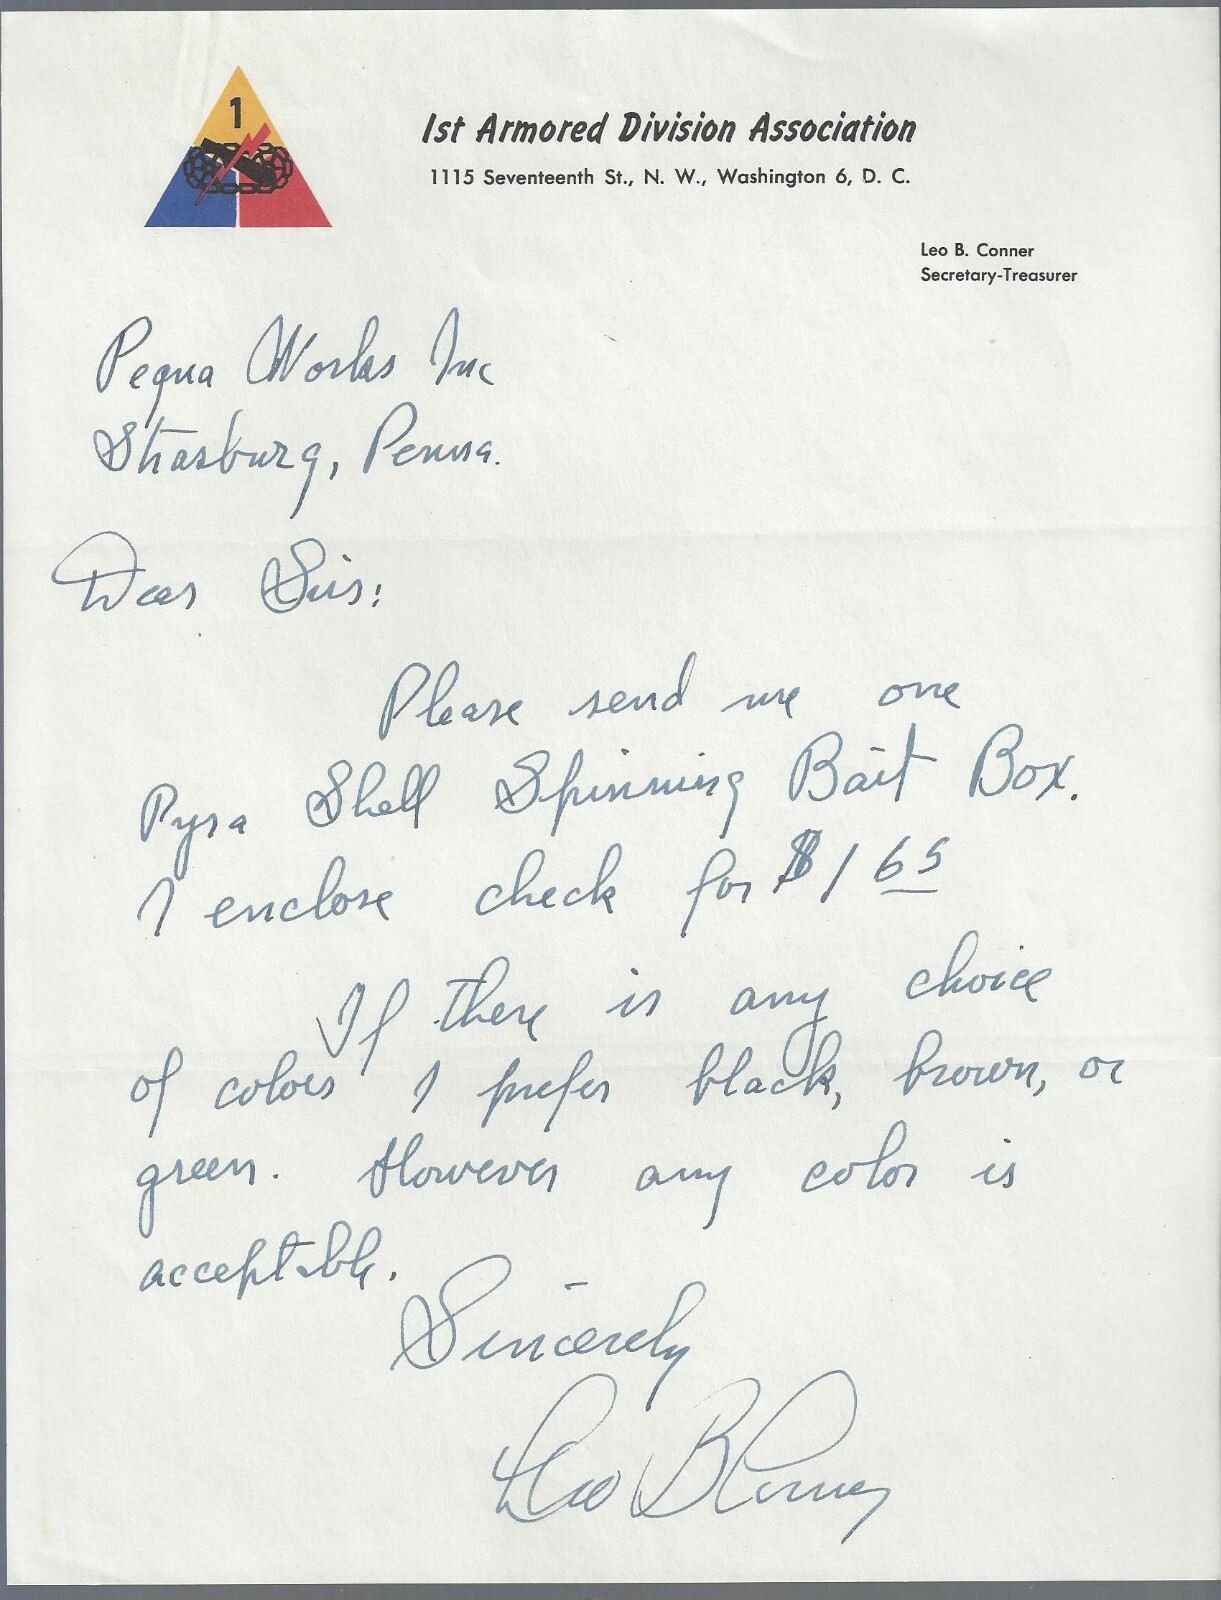 1
1st Armored Division Association
1115 Seventeenth St., N. W., Washington 6, D. C.
Leo B. Conner
Secretary-Treasurer
Pequa Works Inc
Strasburg, Penna.
Dear Sirs:
Please send me one
Pyra Shell Spinning Bait Box.
I enclose check for $1 65
If there is any choice
of colors I prefer black, brown, or
green. However any color is
acceptable.
Sincerely
Leo B Conner